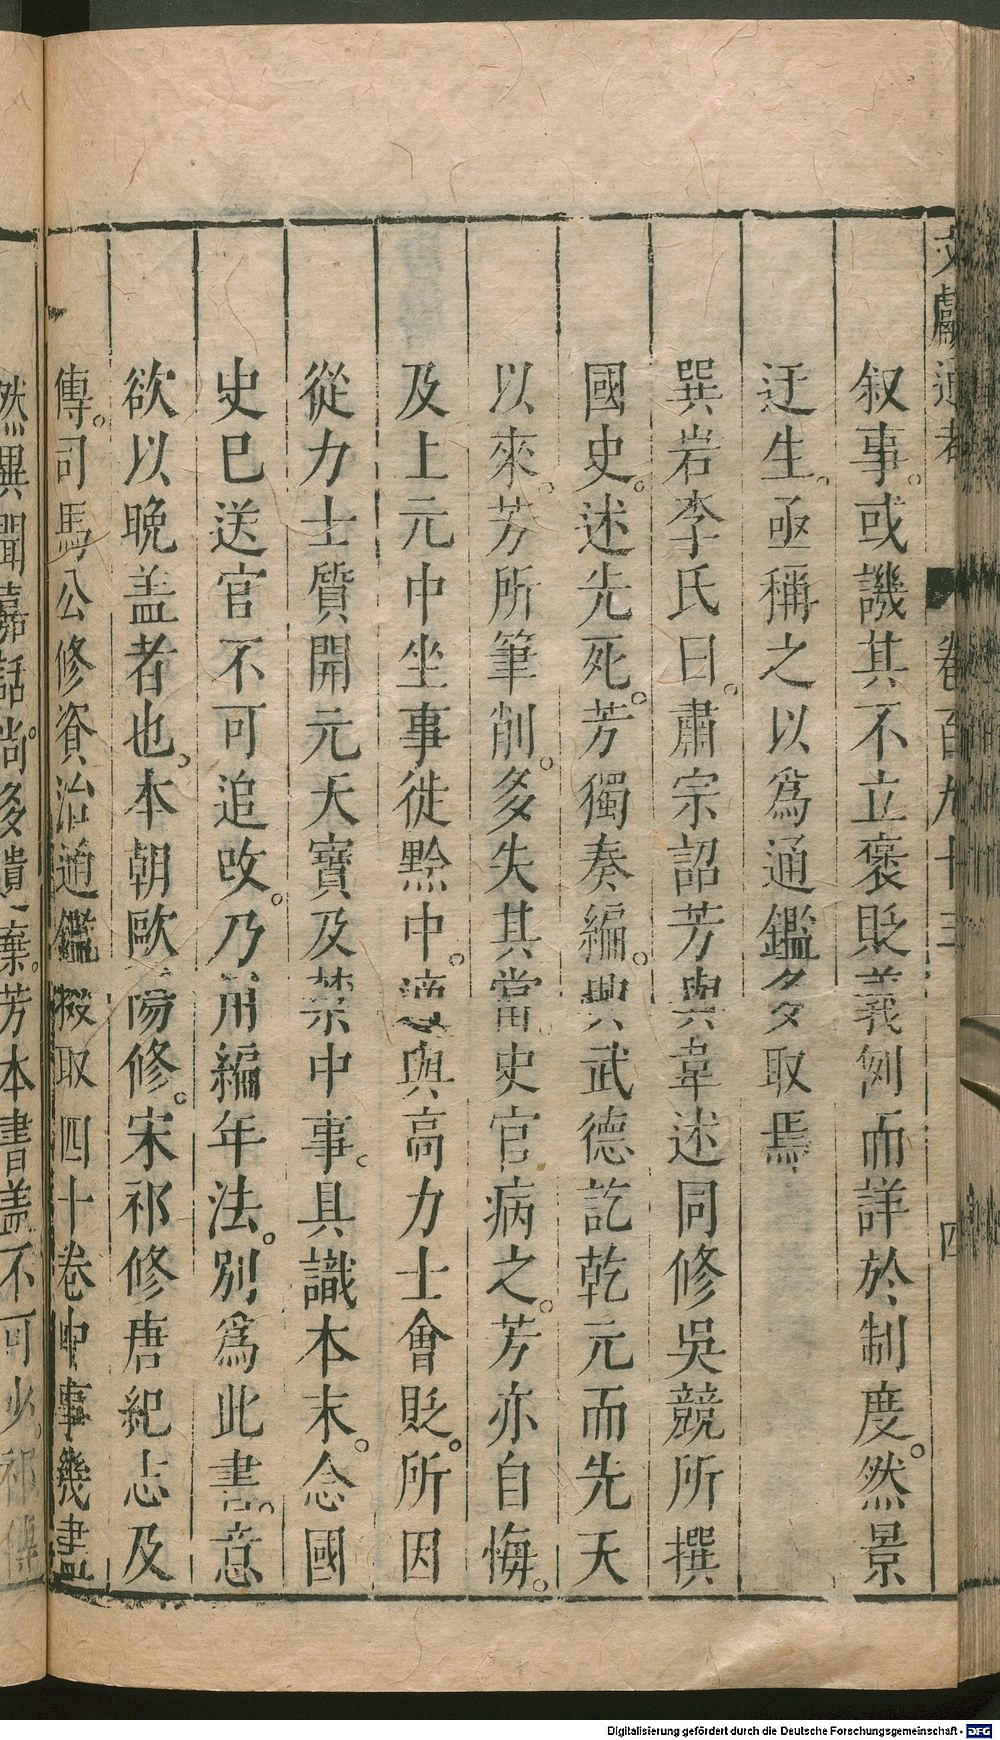 文獻通考 卷百九十三 四
叙事。或譏其不立褒貶義例而詳於制度。然景
迂生。亟稱之以為通鑑多取焉
巽岩李氏曰。肅宗詔芳與韋述同修吳競所撰
國史。述先死。芳獨奏編。興武德訖乾元而先天
以來。芳所筆削。多失其當。史官病之。芳亦自悔。
及上元中坐事徙黔中。適與高力士會貶。所因
從力士質開元天寶及禁中事。具識本末。念國
史已送官不可追改。乃用編年法。別為此書。意
欲以晚盖者也。本朝歐陽修。宋祁修唐紀志及
傳。司馬公修資治通鑑掇取四十卷中事幾盡
然異聞嘉話。尚多遺棄。芳本書盖不可少。祁傳
Digitalisierung gefördert durch die Deutsche Forschungsgemeinschaft - DFG